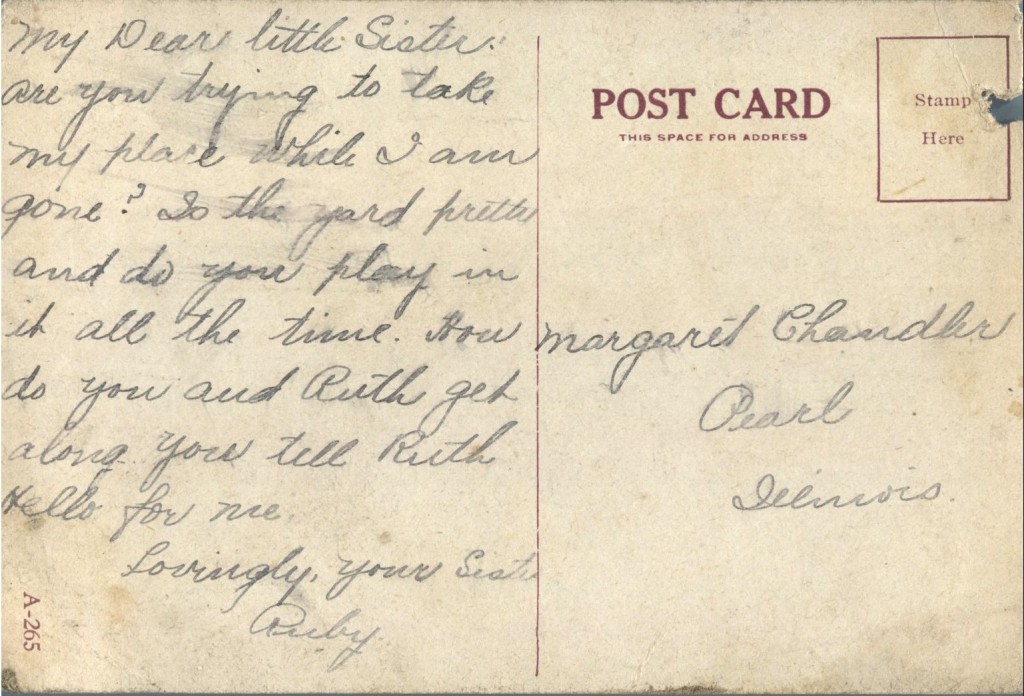 My Dear little Sister:
are you trying to take
my place while I am
gone? Is the yard pretty
and do you play in
it all the time. How
do you and Ruth get
along you tell Ruth
Hello for me.
Lovingly, your Sister
Ruby.
A-265
POST CARD
THIS SPACE FOR ADDRESS
Stamp
Here
Margaret Chandler
Pearl
Illinois.